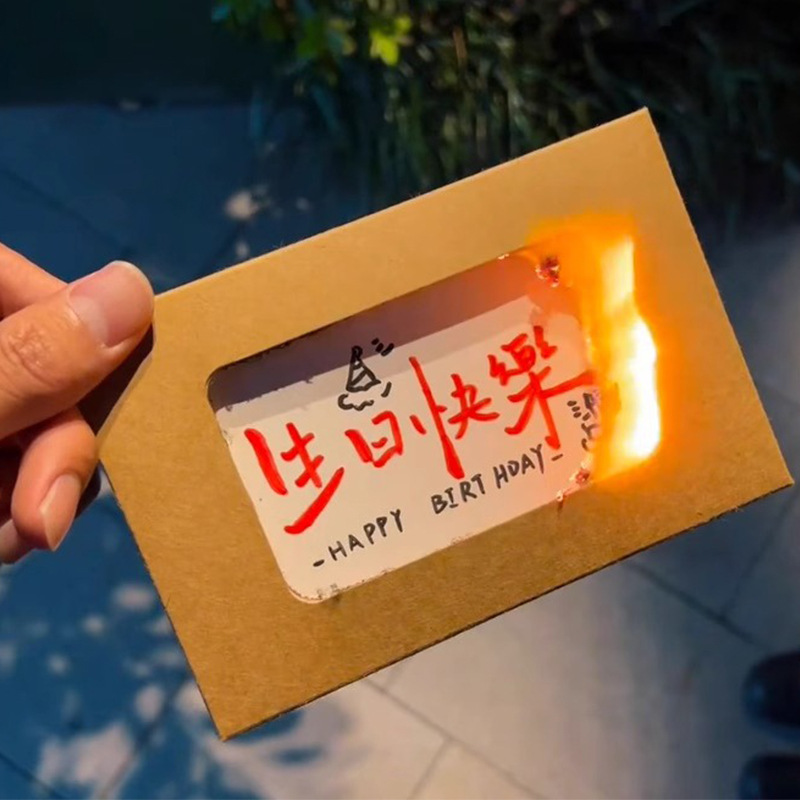 生日快樂
-HAPPY BIRTHDAY-